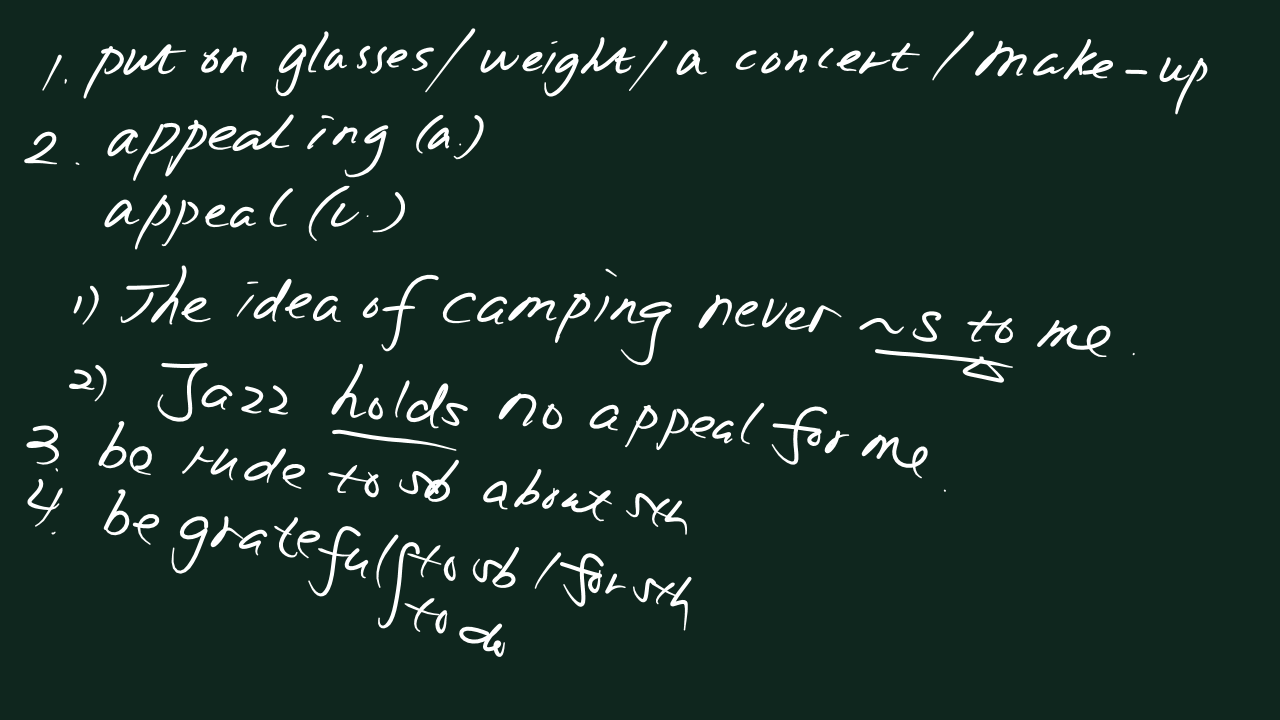 1. put on glasses/weight/a concert/make-up
2. appealing (a.)
appeal (v.)
1) The idea of camping never ~s to me.
2) Jazz holds no appeal for me.
3. be rude to sb about sth
4. be grateful to sb / for sth
to do